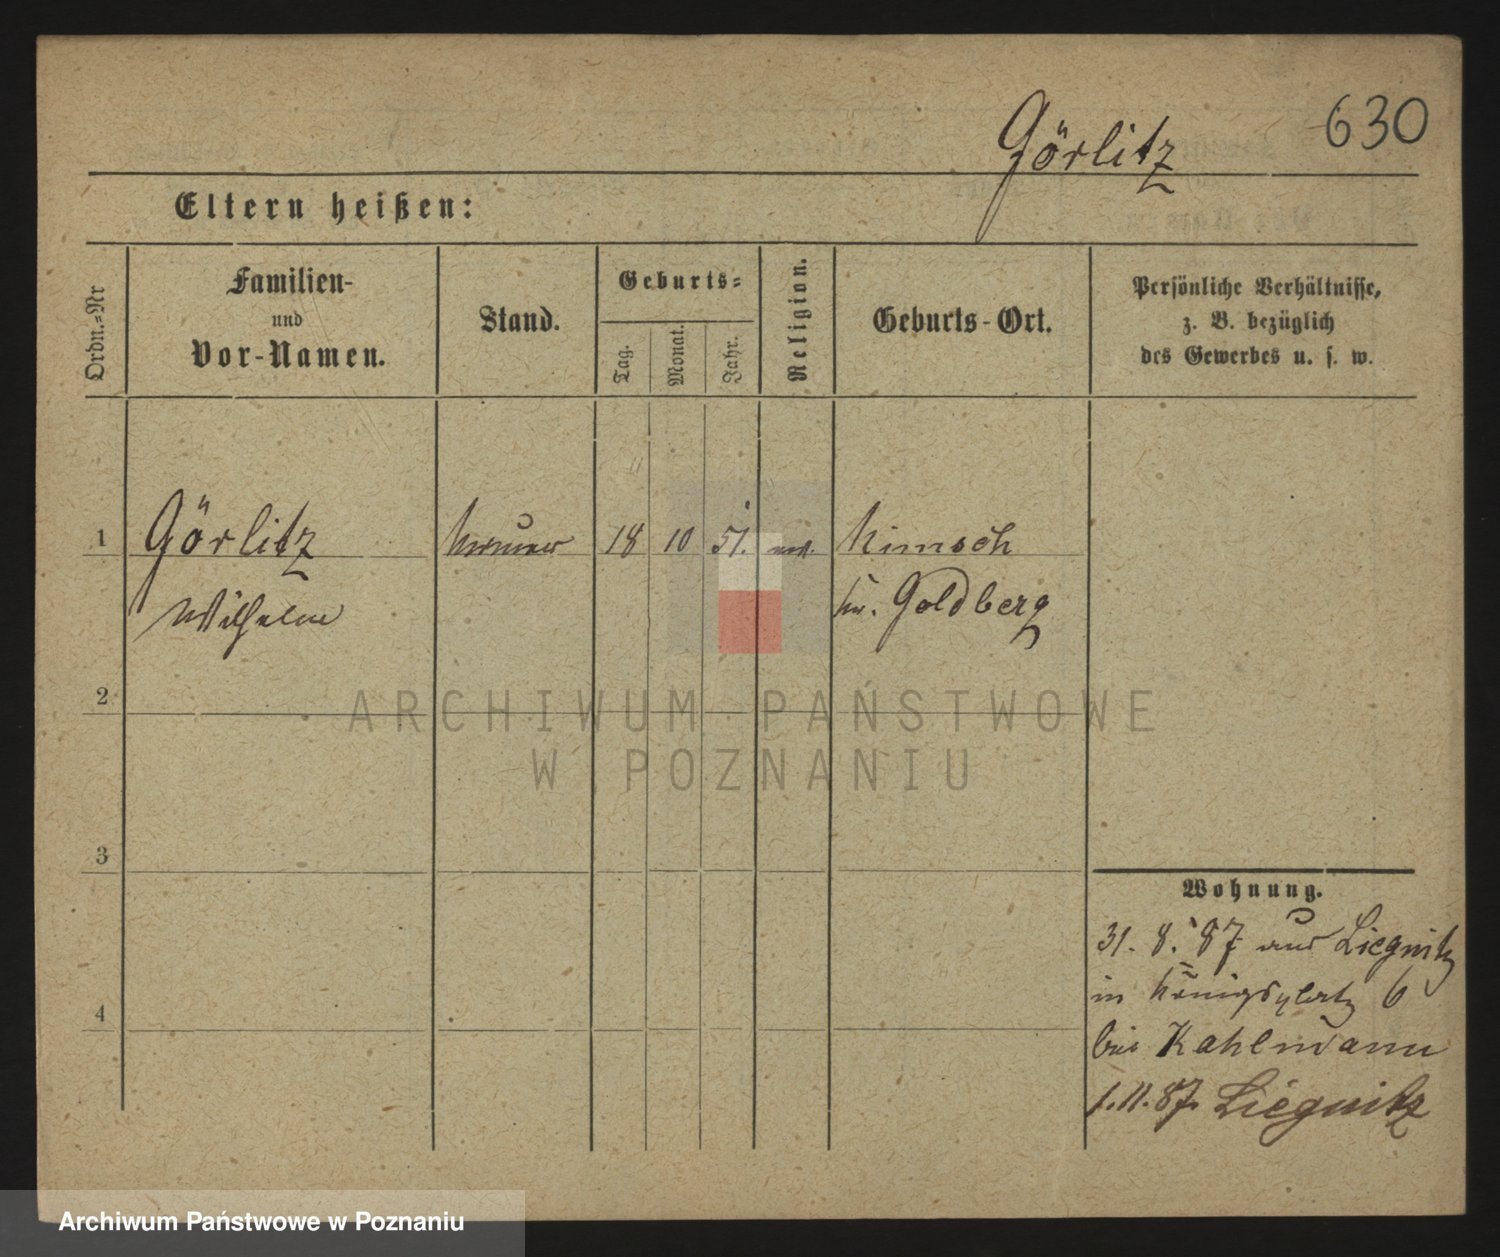 630
Görlitz
Eltern heißen:
Ordn.-Nr
Familien-
und
Vor-Namen.
Stand.
Geburts-
Tag.
Monat.
Jahr.
Religion.
Geburts-Ort.
Persönliche Verhältnisse,
z. B. bezüglich
des Gewerbes u. s. w.
1
Görlitz
18
10
51.
Kr. Goldberg
Wilhelm
2
3
4
Wohnung.
31. 8. 87 aus Liegnitz
in Königsplatz 6
bei Kahlmann
1.11.87. Liegnitz
ARCHIWUM PAŃSTWOWE
W POZNANIU
Archiwum Państwowe w Poznaniu